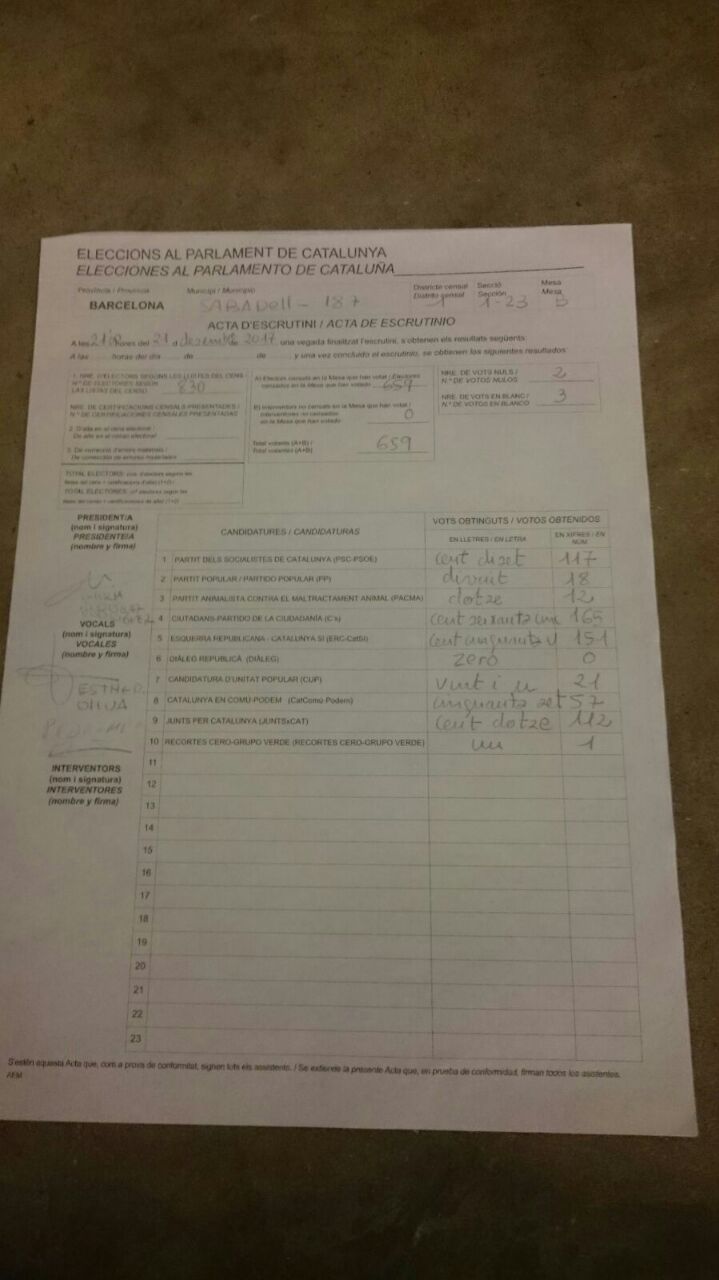 ELECCIONS AL PARLAMENT DE CATALUNYA
ELECCIONES AL PARLAMENTO DE CATALUÑA
Província / Provincia
Municipi / Municipio
Districte censal
Distrito censal
Secció
Sección
Mesa
Mesa
BARCELONA
SABADELL - 187
1
1-23
B
ACTA D'ESCRUTINI / ACTA DE ESCRUTINIO
A les hores del 21 de desembre de 2017, una vegada finalitzat l'escrutini, s'obtenen els resultats següents:
A las horas del día de de y una vez concluido el escrutinio, se obtienen los siguientes resultados:
1. NRE. D'ELECTORS SEGONS LES LLISTES DEL CENS
N.º DE ELECTORES SEGÚN
LAS LISTAS DEL CENSO
830
NRE. DE CERTIFICACIONS CENSALS PRESENTADES /
N.º DE CERTIFICACIONES CENSALES PRESENTADAS
2. D'alta en el cens electoral /
De alta en el censo electoral
3. De correcció d'errors materials /
De corrección de errores materiales
TOTAL ELECTORS:
TOTAL ELECTORES:
A) Electors censats en la Mesa que han votat / Electores
censados en la Mesa que han votado
659
B) Interventors no censats en la Mesa que han votat /
Interventores no censados
en la Mesa que han votado
0
Total votants (A+B) /
Total votantes (A+B)
659
NRE. DE VOTS NULS /
N.º DE VOTOS NULOS
2
NRE. DE VOTS EN BLANC /
N.º DE VOTOS EN BLANCO
3
PRESIDENT/A
(nom i signatura)
PRESIDENTE/A
(nombre y firma)
VOCALS
(nom i signatura)
VOCALES
(nombre y firma)
ESTHER
OLIVA
INTERVENTORS
(nom i signatura)
INTERVENTORES
(nombre y firma)
CANDIDATURES / CANDIDATURAS
VOTS OBTINGUTS / VOTOS OBTENIDOS
EN LLETRES / EN LETRA
EN XIFRES / EN NÚM.
1 PARTIT DELS SOCIALISTES DE CATALUNYA (PSC-PSOE) cent disset 117
2 PARTIT POPULAR / PARTIDO POPULAR (PP) divuit 18
3 PARTIT ANIMALISTA CONTRA EL MALTRACTAMENT ANIMAL (PACMA) dotze 12
4 CIUTADANS-PARTIDO DE LA CIUDADANÍA (C's) cent seixanta cinc 165
5 ESQUERRA REPUBLICANA - CATALUNYA SÍ (ERC-CatSí) cent cinquanta u 151
6 DIÀLEG REPUBLICÀ (DIÀLEG) zero 0
7 CANDIDATURA D'UNITAT POPULAR (CUP) vint i u 21
8 CATALUNYA EN COMÚ-PODEM (CatComú-Podem) cinquanta set 57
9 JUNTS PER CATALUNYA (JUNTSxCAT) cent dotze 112
10 RECORTES CERO-GRUPO VERDE (RECORTES CERO-GRUPO VERDE) un 1
11
12
13
14
15
16
17
18
19
20
21
22
23
S'estén aquesta Acta que, com a prova de conformitat, signen tots els assistents. / Se extiende la presente Acta que, en prueba de conformidad, firman todos los asistentes.
AEM